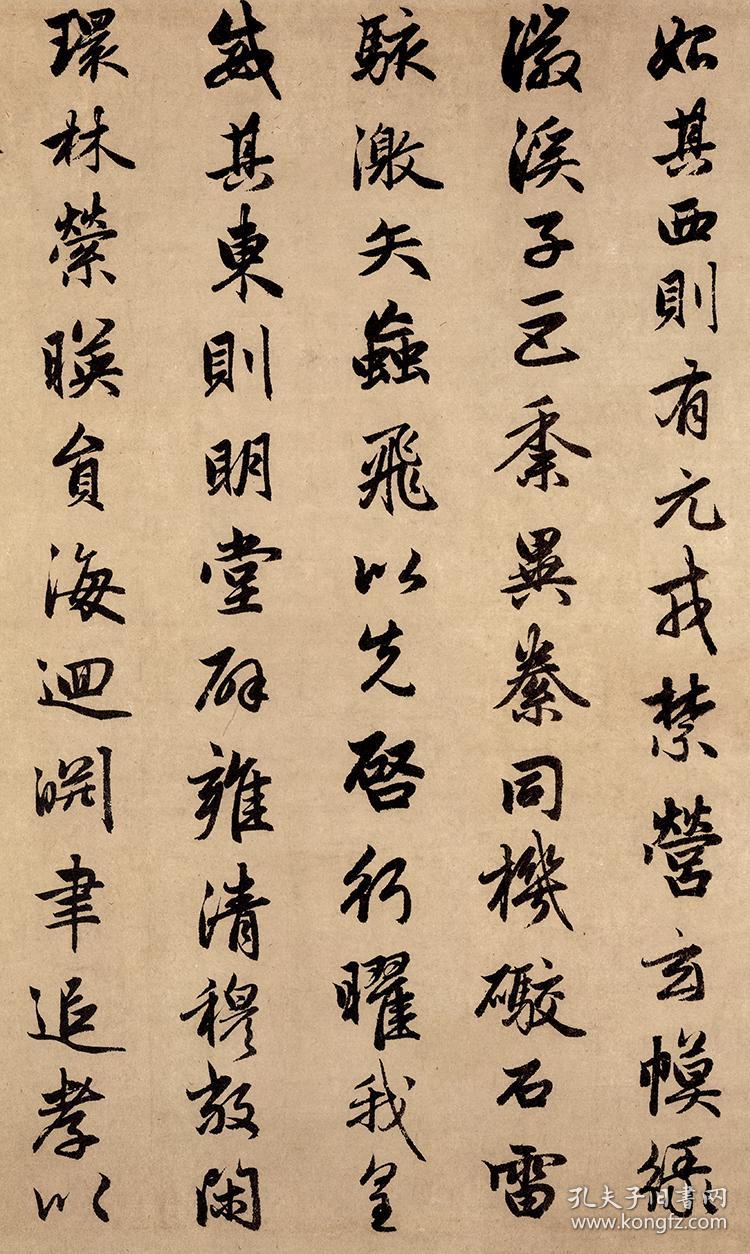 始其西則有元戎禁營玄幙綠
徽溪子巨黍異絭同機礮石雷
駭激矢蝱飛以先啓行曜我皇
威其東則明堂辟雍清穆敞閑
環林縈暎員海迴淵聿追孝以
孔夫子旧書网
www.kongfz.com